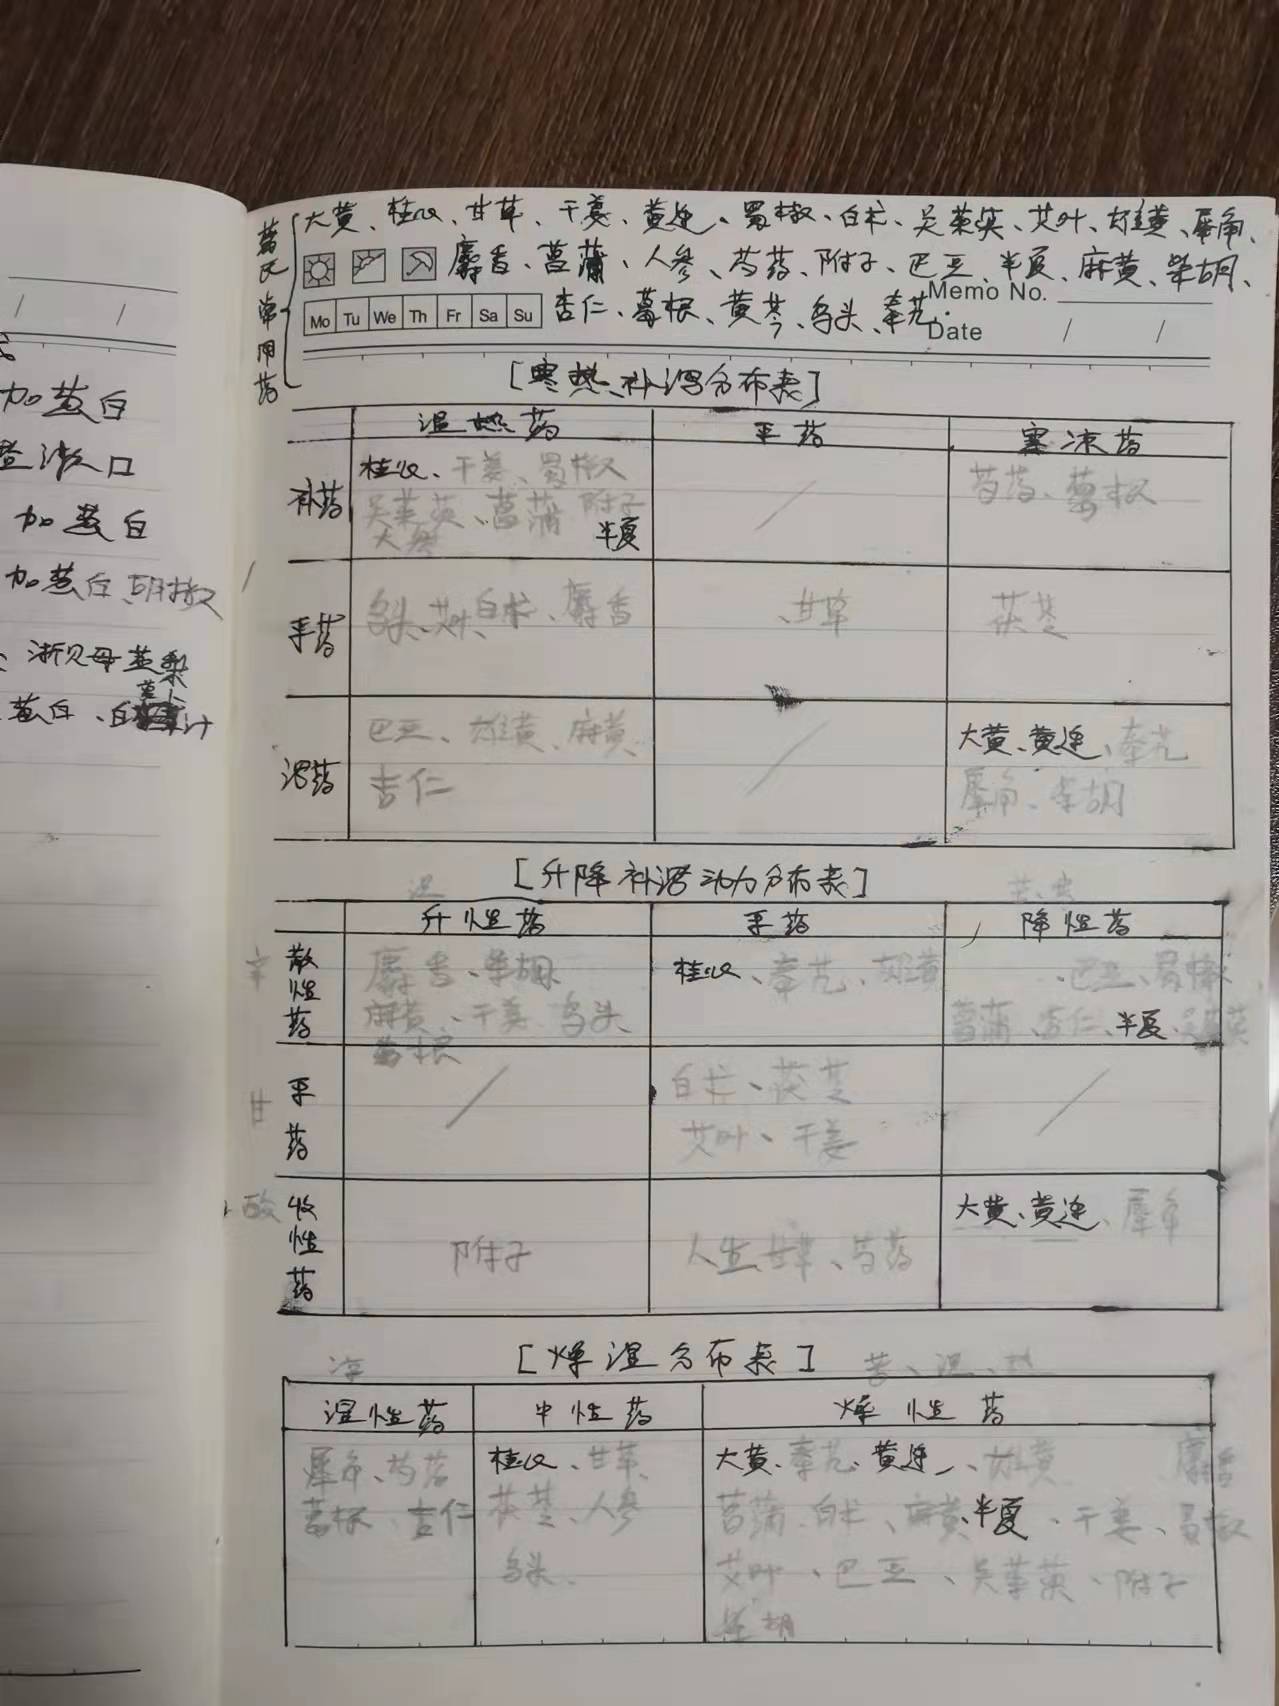 加葱白
加葱白
加葱白、胡椒
浙贝母 梨
葱白、白 汁
葛氏常用药
大黄、桂心、甘草、干姜、黄连、蜀椒、白术、吴茱萸、艾叶、雄黄、犀角、
麝香、菖蒲、人参、芍药、附子、巴豆、半夏、麻黄、柴胡、
Memo No.
Mo Tu We Th Fr Sa Su
杏仁、葛根、黄芩、乌头、秦艽.
Date / /
[寒热补泻分布表]
温热药 平药 寒凉药
补药 桂心、干姜、蜀椒 / 芍药、葛根
吴茱萸、菖蒲 附子
半夏
平药 乌头、艾叶、白术、麝香 、甘草 茯苓
泻药 巴豆、雄黄、麻黄、 / 大黄、黄连、秦艽
杏仁 犀角、柴胡
[升降补泻动力分布表]
升性药 平药 降性药
辛 散性药 麝香、柴胡 桂心、秦艽、雄黄 、巴豆、蜀椒
麻黄、干姜 乌头 菖蒲、杏仁、半夏、吴茱萸
葛根
甘 平药 / 白术、茯苓 /
艾叶、干姜
酸 收性药 附子 人参 甘草、芍药 大黄、黄连、犀角
[燥湿分布表]
苦、温、热
湿性药 中性药 燥性药
犀角、芍药 桂心、甘草、 大黄、秦艽、黄连、雄黄 麝香
葛根、杏仁 茯苓、人参 菖蒲、白术、麻黄、半夏、干姜、蜀椒
乌头. 艾叶、巴豆、吴茱萸、附子
柴胡